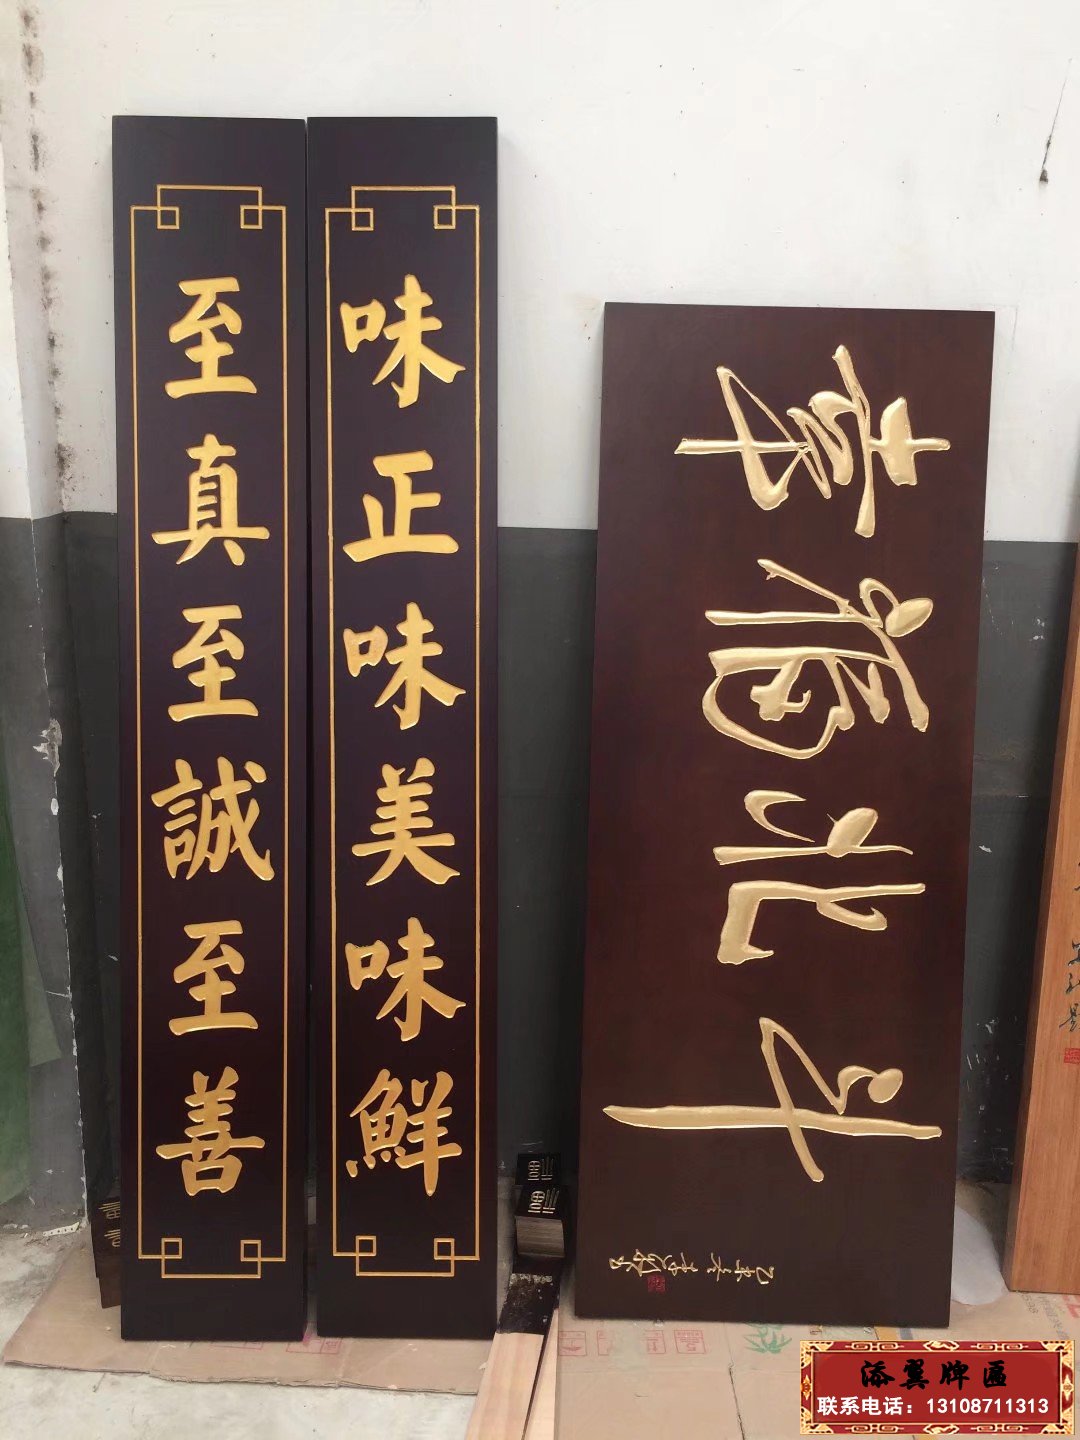 味正味美味鮮
至真至誠至善
北斗
添翼牌匾
联系电话：13108711313